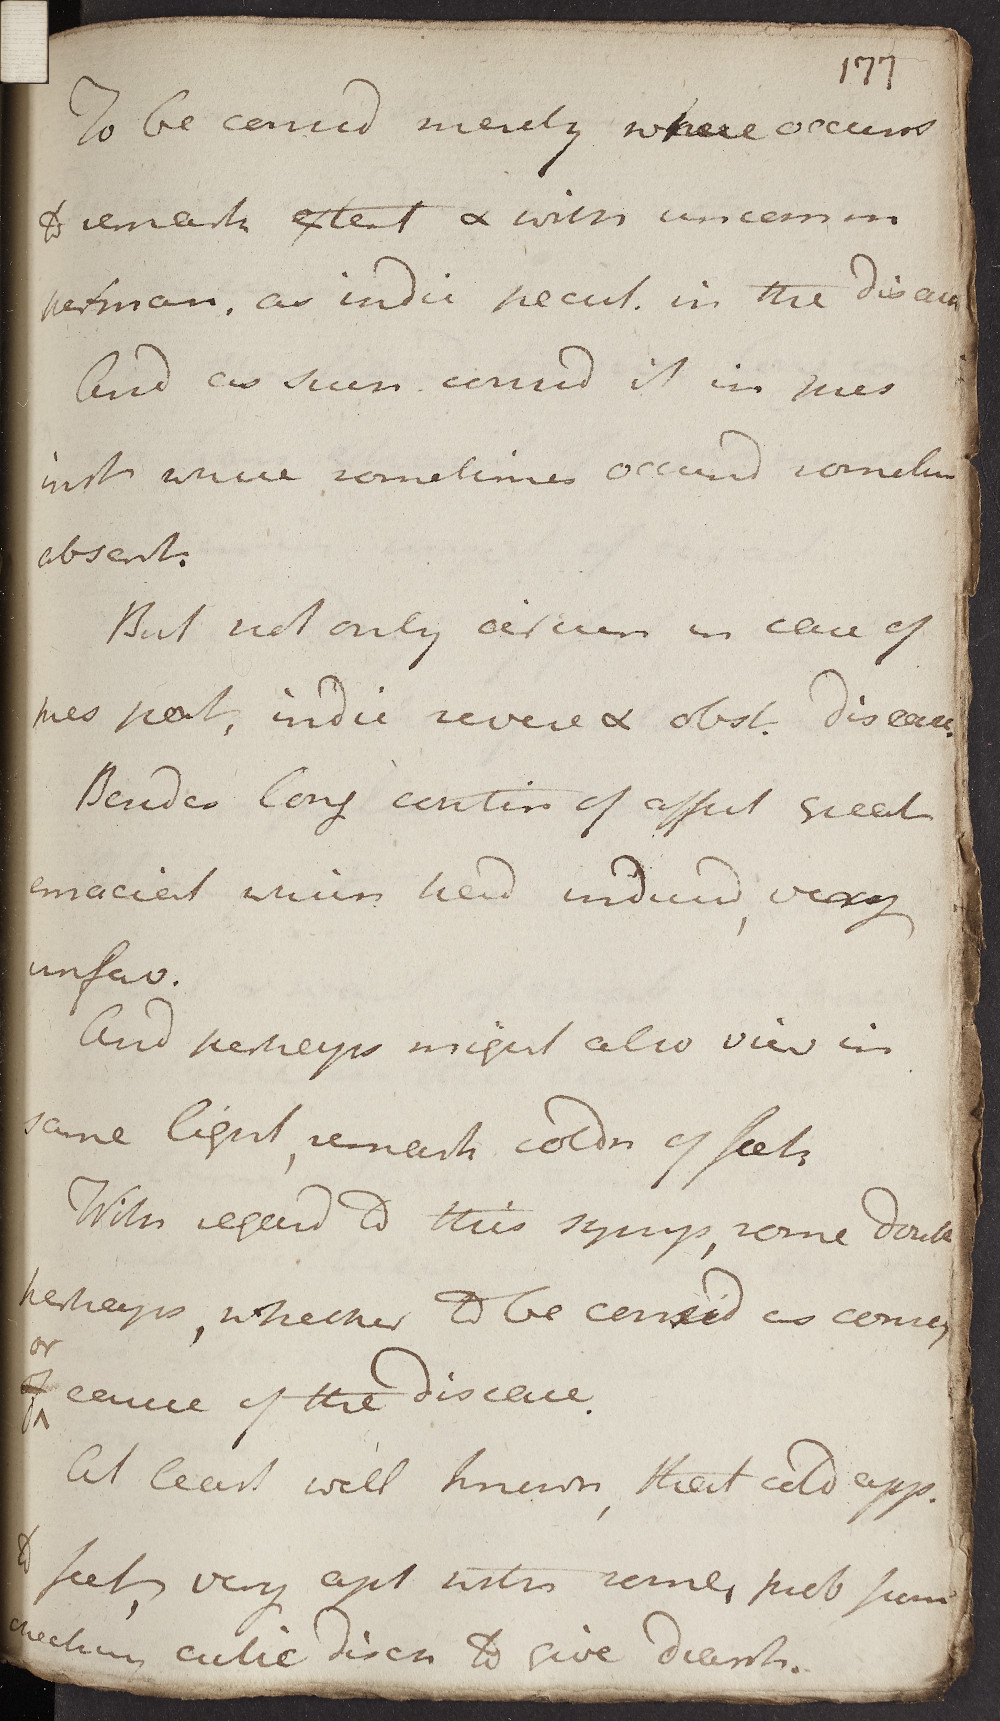 177
To be consid merely where occurs
to remark extent & with uncomm
perman. as indic pecul. in the diseas
And as such consid it in pres
inst where sometimes occurrd sometim
absent.
But not only occurr in case of
pres pat, indic severe & obst. disease.
Besides long contin of affect great
emaciat which had inducd, very
unfav.
And perhaps might also view in
same light, remark coldn of feet,
With regard to this symp, some doubt
perhaps, whether to be consid as conseq
or
cause of the disease.
At least well known, that cold app.
to feet, very apt with some, prob from
checking cutic disch to give diarrh.